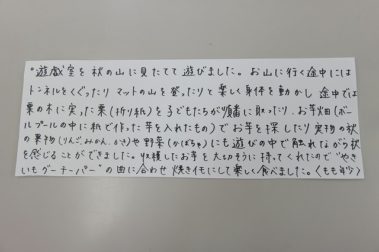 ・遊戯室を秋の山に見たてて遊びました。お山に行く途中には
トンネルをくぐったり マットの山を登ったりと楽しく身体を動かし 途中では
栗の木に実った栗(折り紙)を子どもたちが順番に取ったり、お芋畑(ボー
ルプールの中に紙で作った芋を入れたもの)でお芋を探したり 実物の秋
の果物(りんご、みかん、かき)や野菜(かぼちゃ)にも遊びの中で触れながら秋
を感じることができました。収穫したお芋を大切そうに持ってくれたので"やき
いもグーチーパー"の曲に合わせ 焼きイモにして楽しく食べました。〈もも